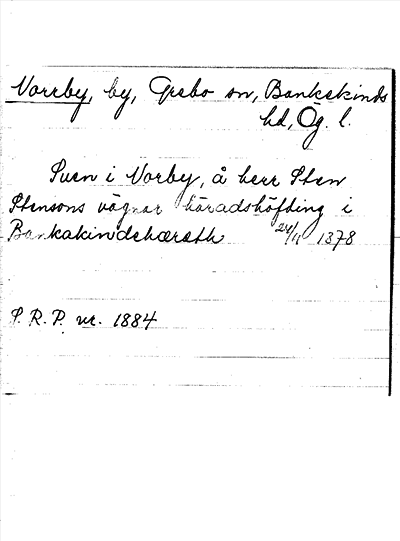 Norrby, by, Grebo sn, Bankekinds
hd, Ög. l.
Suen i Norby, å herr Sten
Stensons vägnar häradshöfding i
Bankakindehærath 24/11 1378
S. R. P. nr. 1884